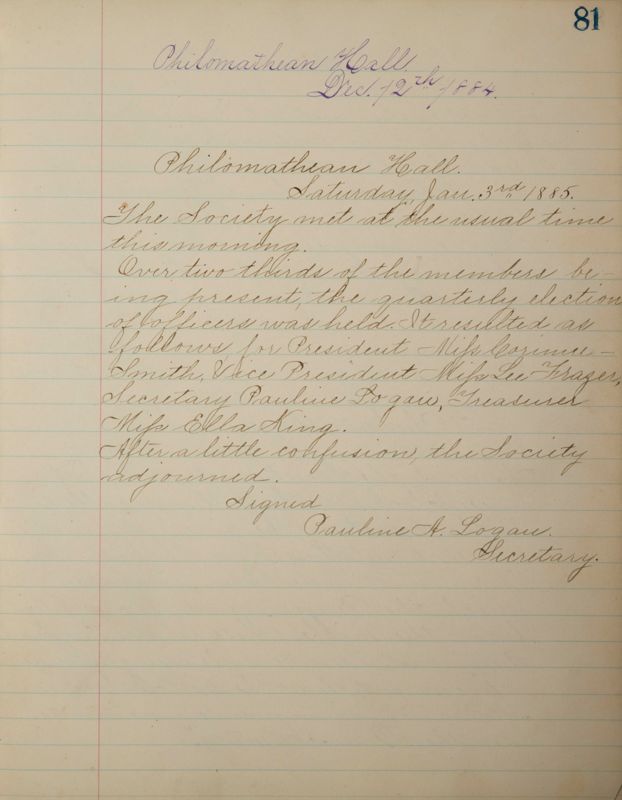 81
Philomathean Hall
Dec. 12th 1884.
Philomathean Hall.
Saturday, Jan. 3rd, 1885.
The Society met at the usual time
this morning.
Over two thirds of the members be-
ing present, the quarterly election
of officers was held. It resulted as
follows, for President - Miss Corinne -
Smith, Vice President - Miss Lee Frazer,
Secretary Pauline Logan, Treasurer
Miss Ella King.
After a little confusion, the Society
adjourned.
Signed
Pauline A. Logan.
Secretary.